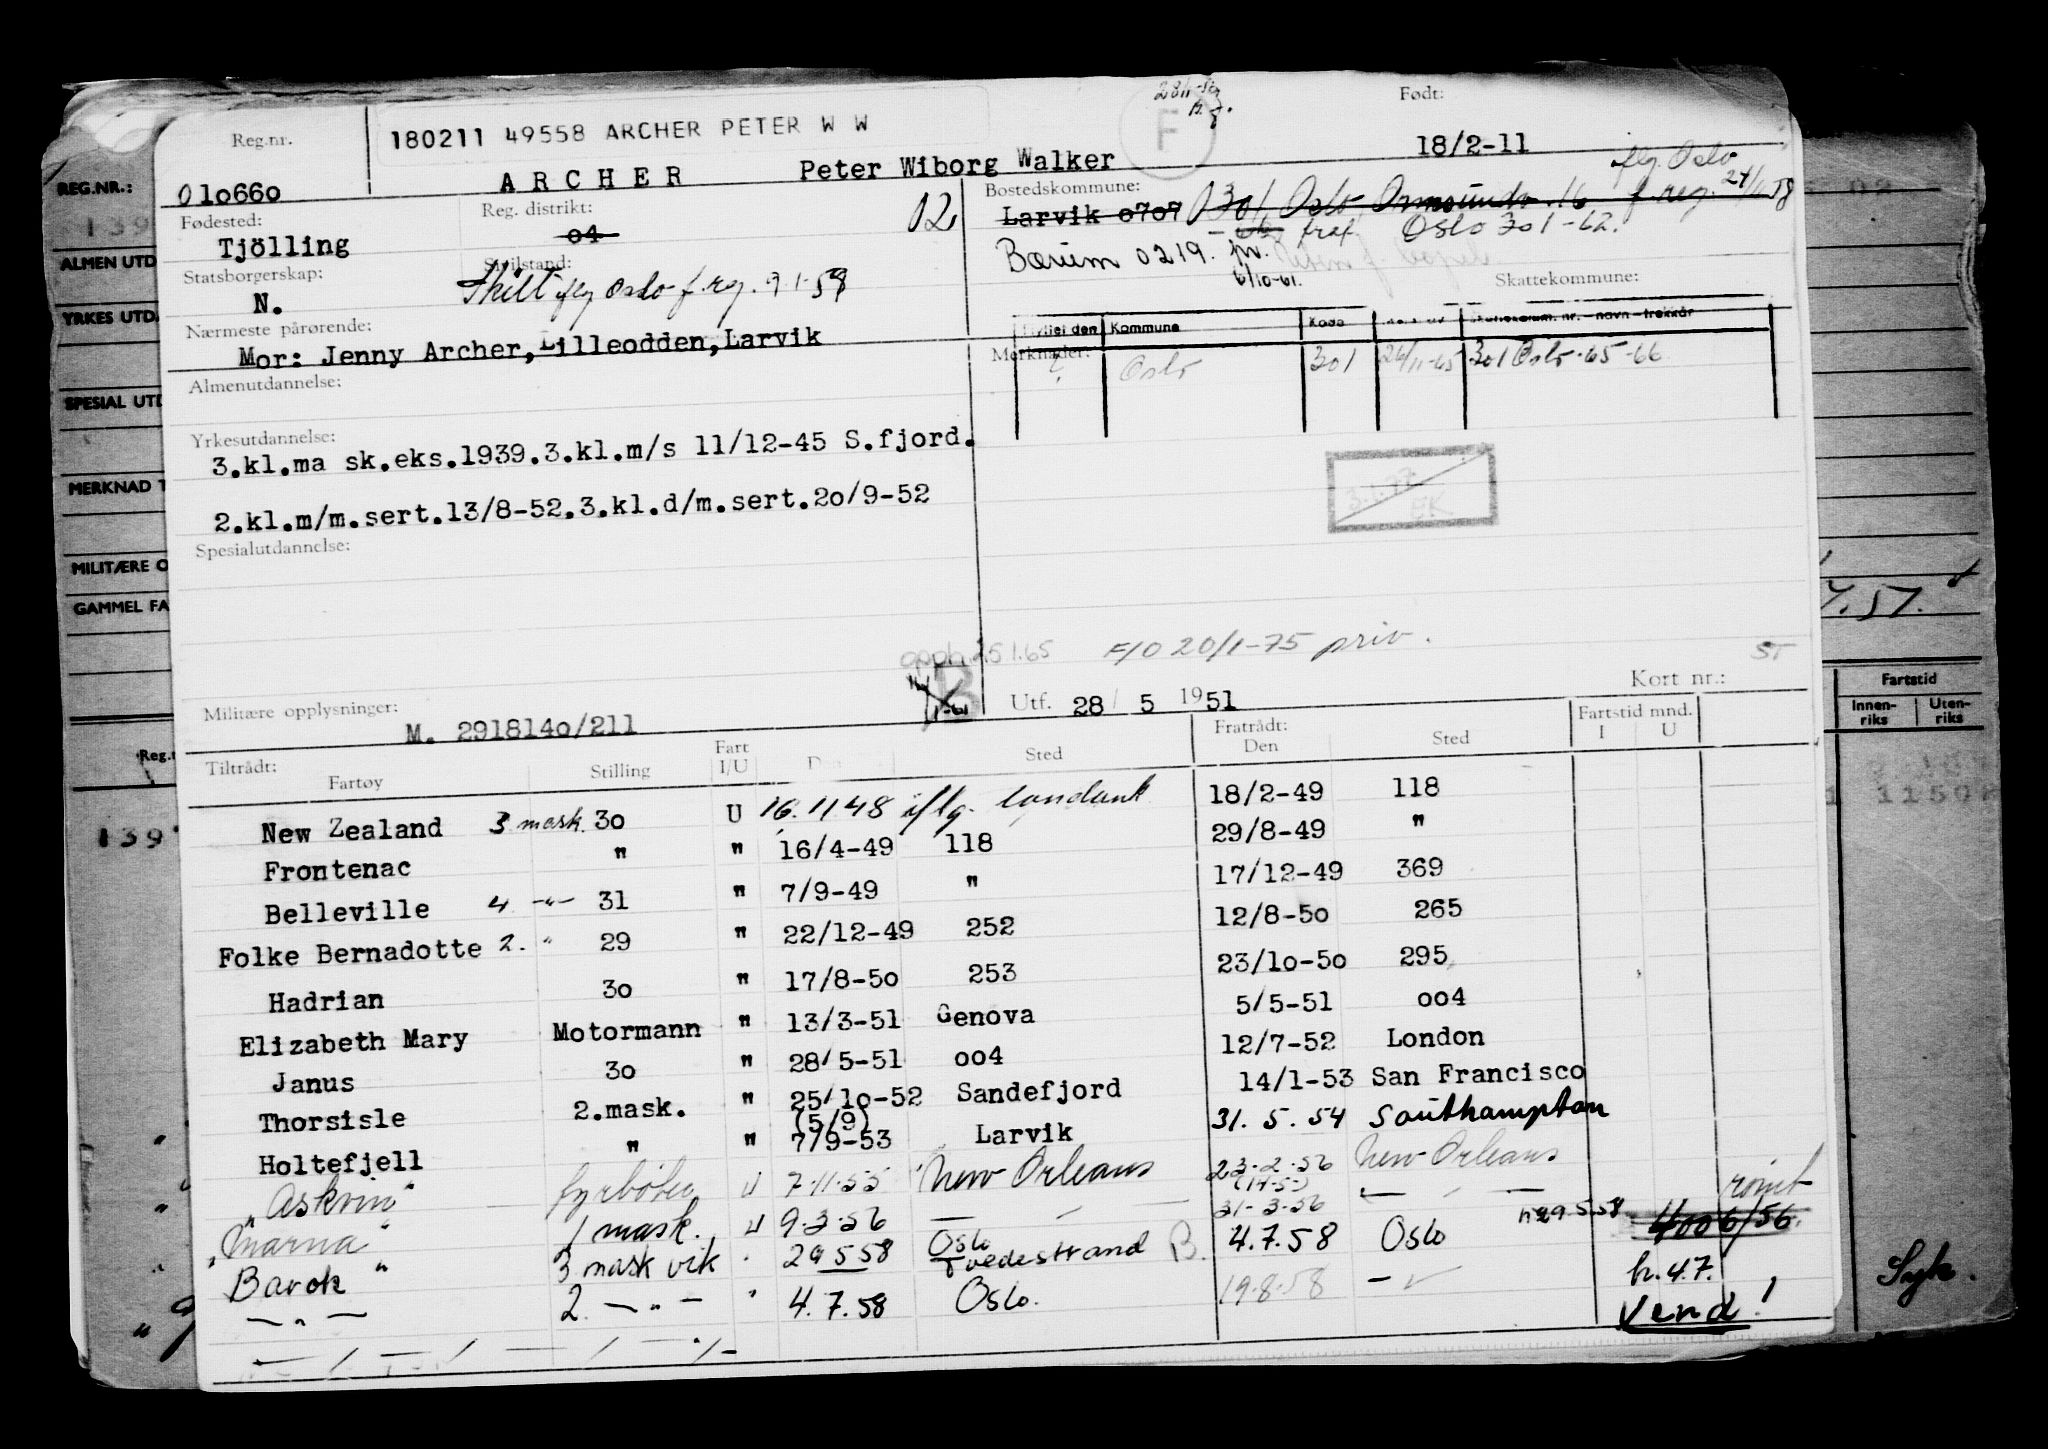 Reg.nr.
180211 49558 ARCHER PETER W W
Født:
18/2-11
010660
ARCHER Peter Wiborg Walker
Fødested:
Tjölling
Reg. distrikt:
04
12
Bostedskommune:
Larvik 0707
301 Oslo
flg. Oslo f.reg.
Oslo 301-62.
Bærum 0219.
6/10-61.
Statsborgerskap:
N.
Sivilstand:
Skilt flg Oslo f.reg. 9.1.59
Skattekommune:
Nærmeste pårørende:
Mor: Jenny Archer, Lilleodden, Larvik
Merknader:
Kommune Kode
? Oslo 301 26/11-65 301 Oslo-65-66
Almenutdannelse:
Yrkesutdannelse:
3.kl.ma sk.eks.1939.3.kl.m/s 11/12-45 S.fjord.
2.kl.m/m.sert.13/8-52.3.kl.d/m.sert.20/9-52
Spesialutdannelse:
F/O 20/1-75 priv.
ST
Militære opplysninger:
M. 2918140/211
Utf. 28 / 5 1951
Kort nr.:
Tiltrådt:
Fartøy Stilling Fart I/U Sted Fratrådt: Den Sted Fartstid mnd. I U
New Zealand 3 mask. 30 U 16.11.48 18/2-49 118
Frontenac " " 16/4-49 118 29/8-49 "
Belleville 4 -"- 31 " 7/9-49 " 17/12-49 369
Folke Bernadotte 2. " 29 " 22/12-49 252 12/8-50 265
Hadrian 30 " 17/8-50 253 23/10-50 295
Elizabeth Mary Motormann " 13/3-51 Genova 5/5-51 004
Janus 30 " 28/5-51 004 12/7-52 London
Thorsisle 2.mask. " 25/10-52 Sandefjord 14/1-53 San Francisco
Holtefjell " " (5/9) 7/9-53 Larvik 31.5.54 Southampton
"Askvin" fyrbøter U 7.11.55 New Orleans 23.2.56 New Orleans
"Marna" 1 mask. U 9.3.56 31-3-56
Barok " 3 mask vik 29 5 58 Oslo Tvedestrand B. 4.7.58 Oslo
-"- 2. -"- " 4.7.58 Oslo. 19.8.58
h.4.7.
Vend!
REG.NR.:
ALMEN UTD
YRKES UTD.
SPESIAL UTD
MERKNAD T
MILITÆRE O
GAMMEL FA
Reg.
139
Fartstid
Innen-riks Uten-riks
Syk.